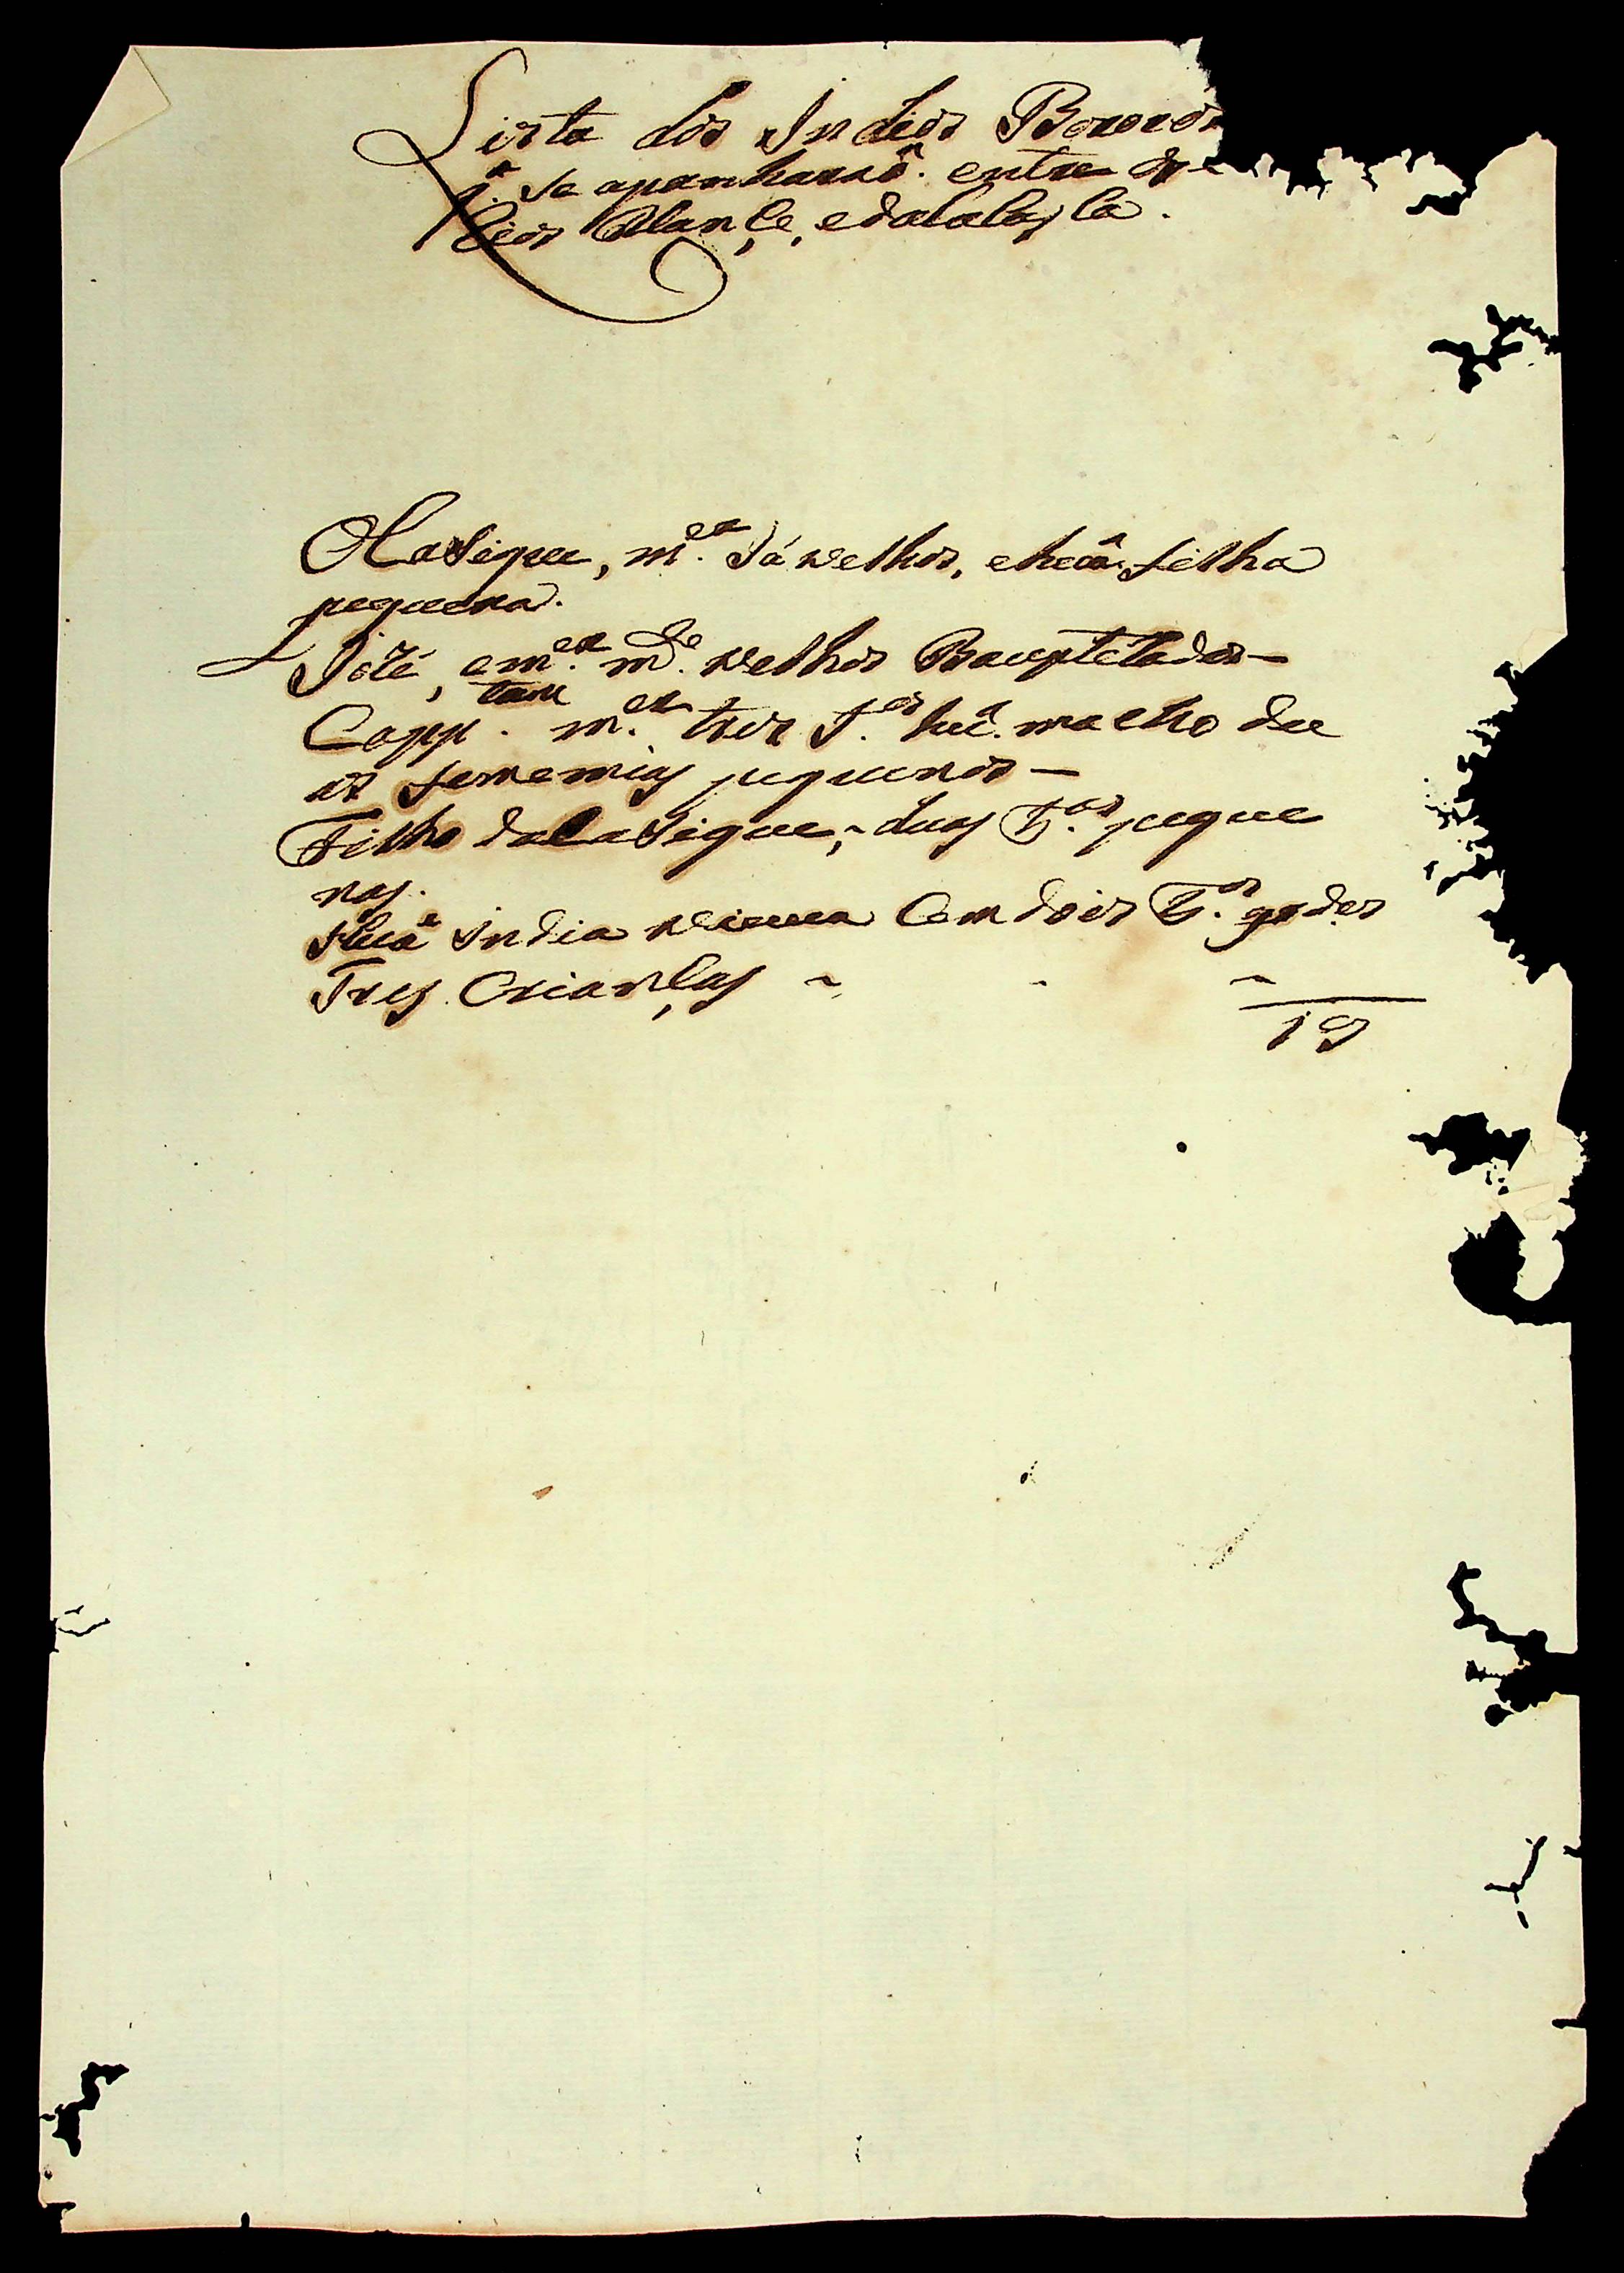 Lista dos Indios Bororos
q. Se apanharaõ. entre os
edacalas,ca.
OCasique, m.er Já velhos, ehuã filha
pequena.
José, em.er m.to velhos Bauptetados—
Capp.tam m.er tres f.os hũ macho du
as femenias pequenos—
Filho doCasique, duas F.as peque
nas.
Huã India viuva Com dois F.os gr.des
Tres Crianças ~ - ~
19